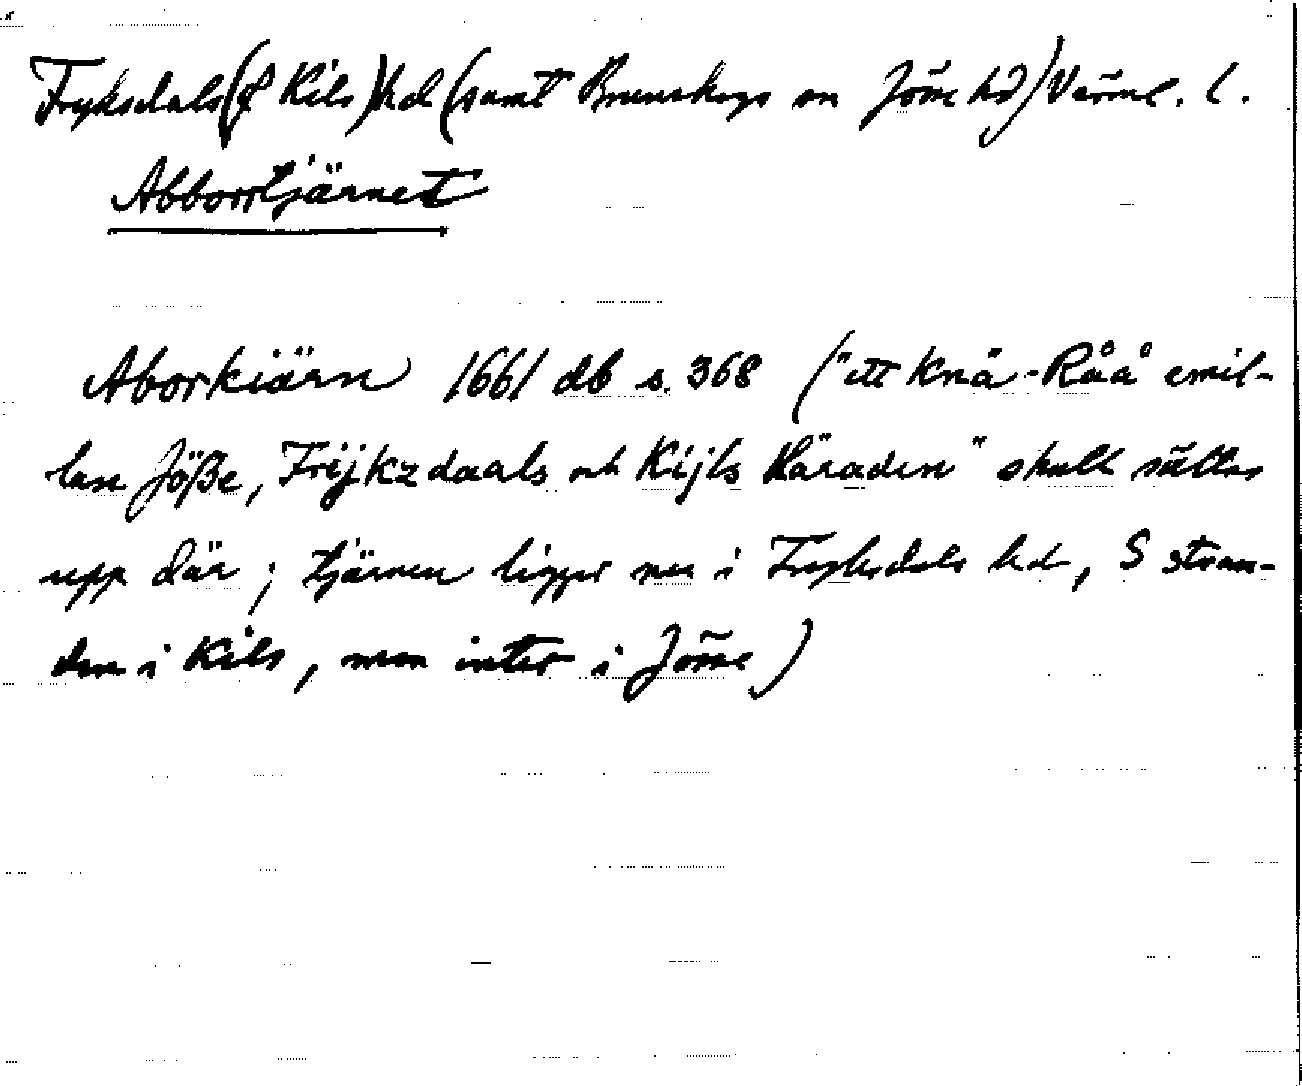 Fryksdals (& Kils) hd (samt Brunskogs sn Jösse hd) Värml. l.
Abborrtjärnet
Aborkiärn 1661 db s. 368 ("ett Knä-Råå emil-
lan Jöße, Frijkzdaals och Kijls Häraden" skall sättas
upp där; tjärnen ligger nu i Fryksdals hd, S stran-
den i Kils, men inte i Jösse)